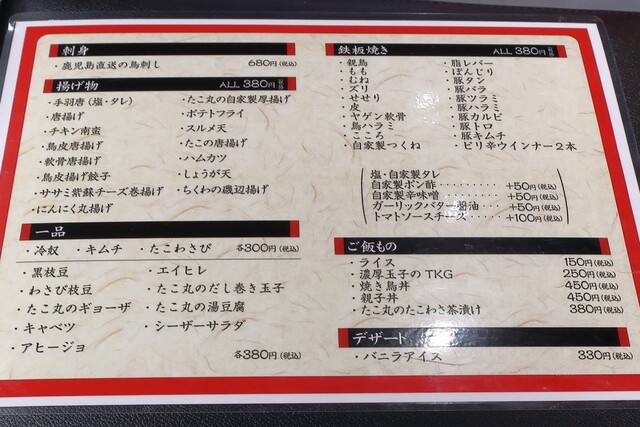 刺身
・鹿児島直送の鳥刺し 680円(税込)
揚げ物 ALL 380円(税込)
・手羽唐（塩・タレ）
・唐揚げ
・チキン南蛮
・鳥皮唐揚げ
・軟骨唐揚げ
・鳥皮揚げ餃子
・ササミ紫蘇チーズ巻揚げ
・にんにく丸揚げ
・たこ丸の自家製厚揚げ
・ポテトフライ
・スルメ天
・たこの唐揚げ
・ハムカツ
・しょうが天
・ちくわの磯辺揚げ
一品
・冷奴 ・キムチ ・たこわさび 各300円(税込)
・黒枝豆
・わさび枝豆
・たこ丸のギョーザ
・キャベツ
・アヒージョ
・エイヒレ
・たこ丸のだし巻き玉子
・たこ丸の湯豆腐
・シーザーサラダ
各380円(税込)
鉄板焼き ALL 380円(税込)
・親鳥
・もも
・むね
・ズリ
・せせり
・皮
・ヤゲン軟骨
・鳥ハラミ
・こころ
・自家製つくね
・脂レバー
・ぼんじり
・豚タン
・豚バラ
・豚ツラミ
・豚ハラミ
・豚カルビ
・豚トロ
・豚キムチ
・ピリ辛ウインナー２本
塩・自家製タレ
自家製ポン酢・・・・・・・・・・+50円(税込)
自家製辛味噌・・・・・・・・・・+50円(税込)
ガーリックバター醤油・・・+50円(税込)
トマトソースチーズ・・・・・・+100円(税込)
ご飯もの
・ライス 150円(税込)
・濃厚玉子のTKG 250円(税込)
・焼き鳥丼 450円(税込)
・親子丼 450円(税込)
・たこ丸のたこわさ茶漬け 380円(税込)
デザート
・バニラアイス 330円(税込)